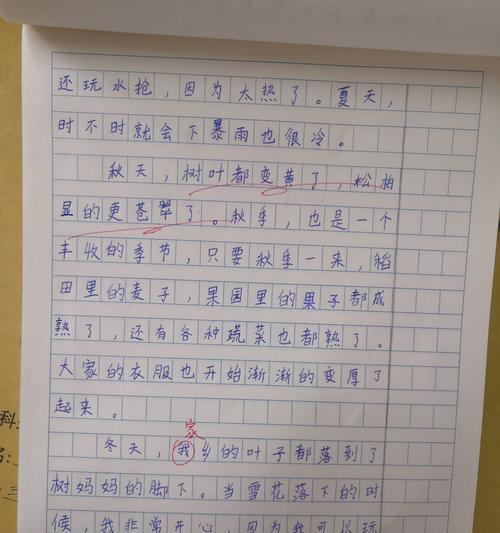 还玩水抢，因为太热了。夏天，
时不时就会下暴雨也很冷。
秋天，树叶都变黄了，松柏
显的更苍翠了。秋季，也是一个
丰收的季节，只要秋季一来，稻
田里的麦子，果园里的果子都成
熟了，还有各种蔬菜也都熟了。
大家的衣服也开始渐渐的变厚了
起来。
家
冬天，我乡的叶子都落到了
树妈妈的脚下。当雪花落下的时
候，我非常开心，因为我可以玩
科:
名:
三